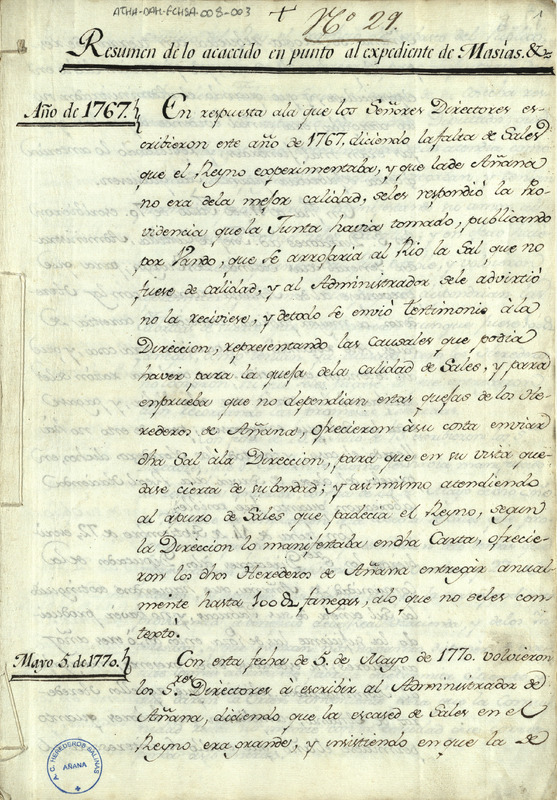 ATHA-DAH-FCHSA-008-003
+
Nº 29.
1
Resumen de lo acaecido en punto al expediente de Masias. &ª
Año de 1767.
En respuesta ala que los Señores Directores es-
cribieron este año de 1767. diciendo la falta de Sales
que el Reyno experimentaba, y que la de Añana
no era dela mejor calidad, seles respondiò la Pro-
videncia que la Junta havia tomado, publicando
por Vando, que se arrojaria al Rio la Sal que no
fuese de calidad, y al Administrador sele advirtiò
no la reciviese, y detodo se enviò testimonio à la
Direccion, representando las causales que podia
haver para la quefa dela calidad de Sales, y para
enprueba que no dependian estas quefas de los He-
rederos de Añana, ofrecieron àsu costa enviar
dha Sal àla Direccion, para que en su vista que-
dase cierta de su bondad; y asimismo atendiendo
al apuro de Sales que padecia el Reyno, segun
la Direccion lo manifestaba endha Carta, ofrecie-
ron los dhos Herederos de Añana entregàr anual-
mente hasta 100 fanegas, àlo que no seles con-
textò.
Mayo 5. de 1770.
Con esta fecha de 5. de Mayo de 1770. volvieron
los S.res Directores à escribir al Administrador de
Añana, diciendo que la escased de Sales en el
Reyno era grande, y insistiendo en que la de
A.C. HEREDEROS SALINAS
AÑANA